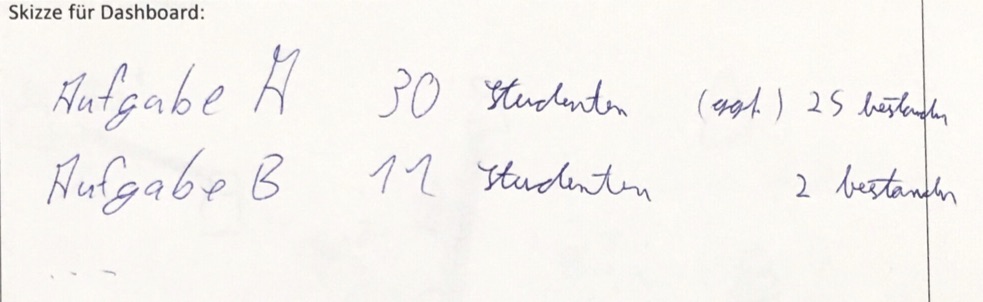 Skizze für Dashboard:
Aufgabe A 30 Studenten (ggf.) 25 bestanden
Aufgabe B 11 Studenten 2 bestanden
...